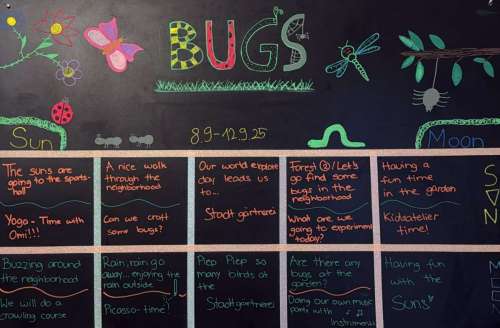 BUGS
Sun
8.9-12.9.25
Moon
The suns are
going to the sports-
hall
Yoga - Time with
Omi!!!
A nice walk
through the
neighborhood
Can we craft
some bugs?
Our world explore
day leads us
to...
Stadtgärtnerei
Forest ② / Let's
go find some
bugs in the
neighborhood
What are we
going to experiment
today?
Having a
fun time
in the garden
Kidsatelier
time!
Buzzing around
the neighborhood
We will do a
crawling course
Rain, rain go
away... enjoying the
rain outside
Picasso-time!
Piep Piep so
many birds at
the
Stadtgärtnerei
Are there any
bugs at the
garden?
Doing our own music
pants with
Instruments
Having fun
with the
Suns